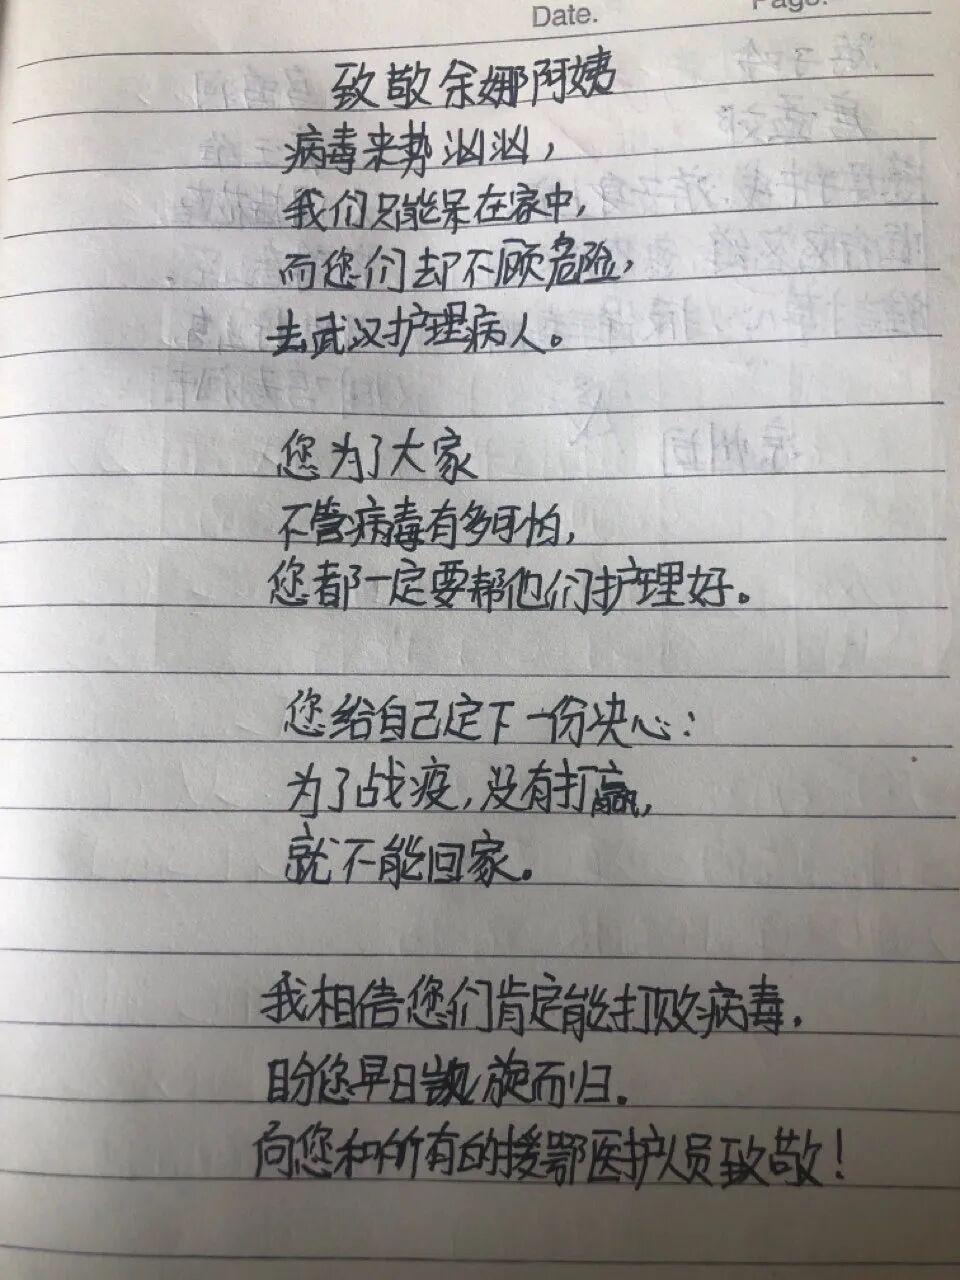 Date.
Page.
致敬余娜阿姨
病毒来势汹汹，
我们只能呆在家中，
而您们却不顾危险，
去武汉护理病人。
您为了大家
不管病毒有多可怕，
您都一定要帮他们护理好。
您给自己定下一份决心：
为了战疫，没有打赢，
就不能回家。
我相信您们肯定能打败病毒．
盼您早日凯旋而归．
向您和所有的援鄂医护人员致敬！